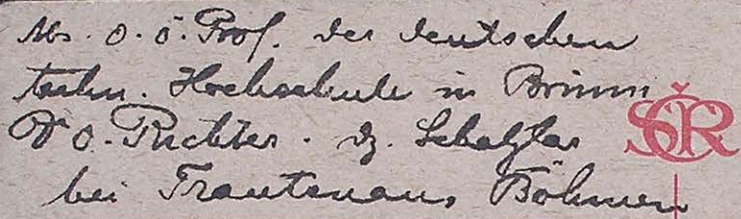 Abs. o. ö. Prof. der deutschen
techn. Hochschule in Brünn
Dr O. Richter. dz. Schatzlar
bei Trautenau, Böhmen